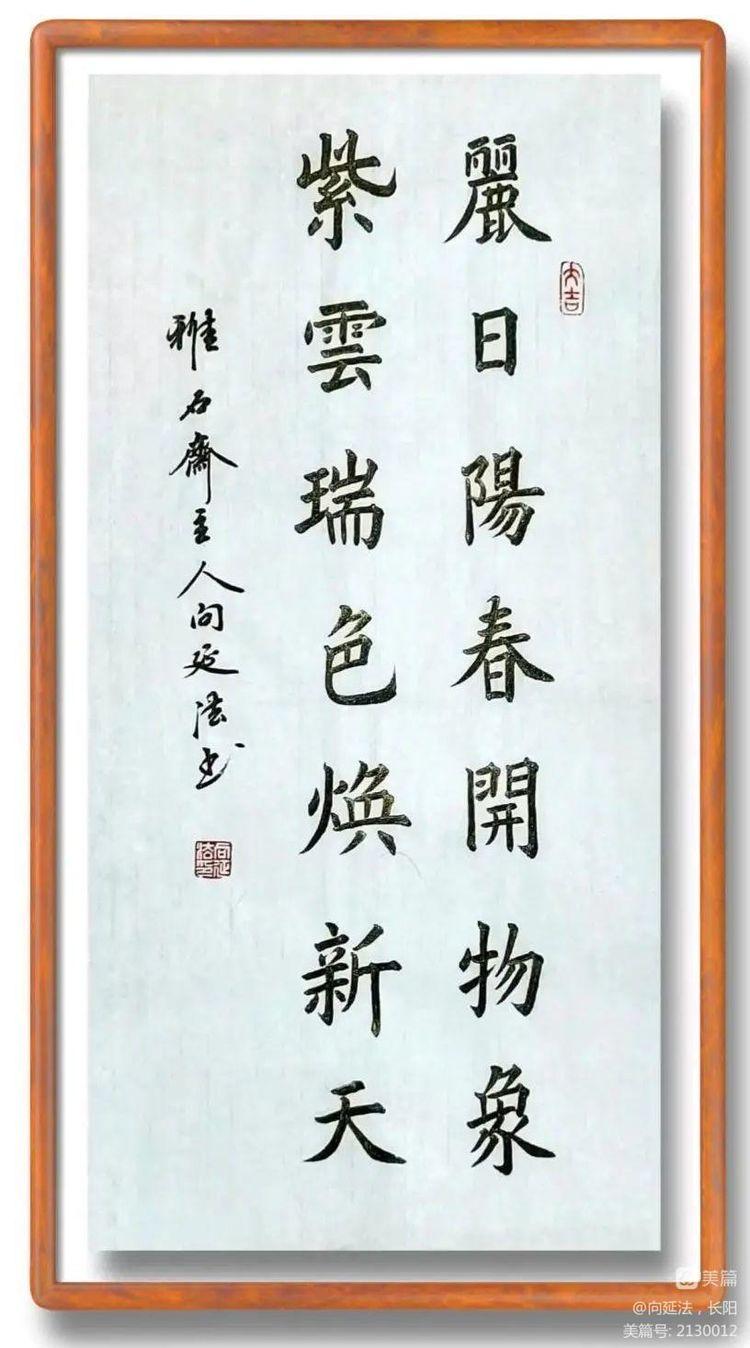 麗日陽春開物象
紫雲瑞色焕新天
雅石齋主人向延法书
大吉
向延法书
美篇
@向延法，长阳
美篇号: 2130012